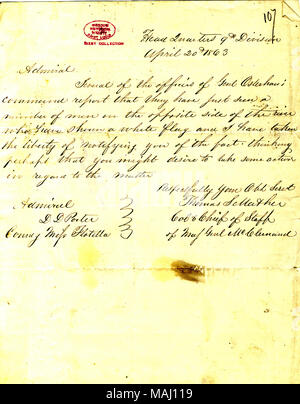 107
MISSOURI
BIXBY COLLECTION
Head Quarters 9th Division
April 20th 1863
Admiral
Several of the officers of Genl Osterhaus
command report that they have just seen a
number of men on the opposite side of the river
who have shown a white flag and I have taken
the liberty of notifying you of the fact - thinking
perhaps that you might desire to take some action
in regard to the matter
Respectfully Your Obt Servt
Admiral
Thomas
D D Porter
Col & Chief of Staff
Comdg Flotilla
of Maj Genl McClernand
alamy
Image ID: MAJ119
www.alamy.com